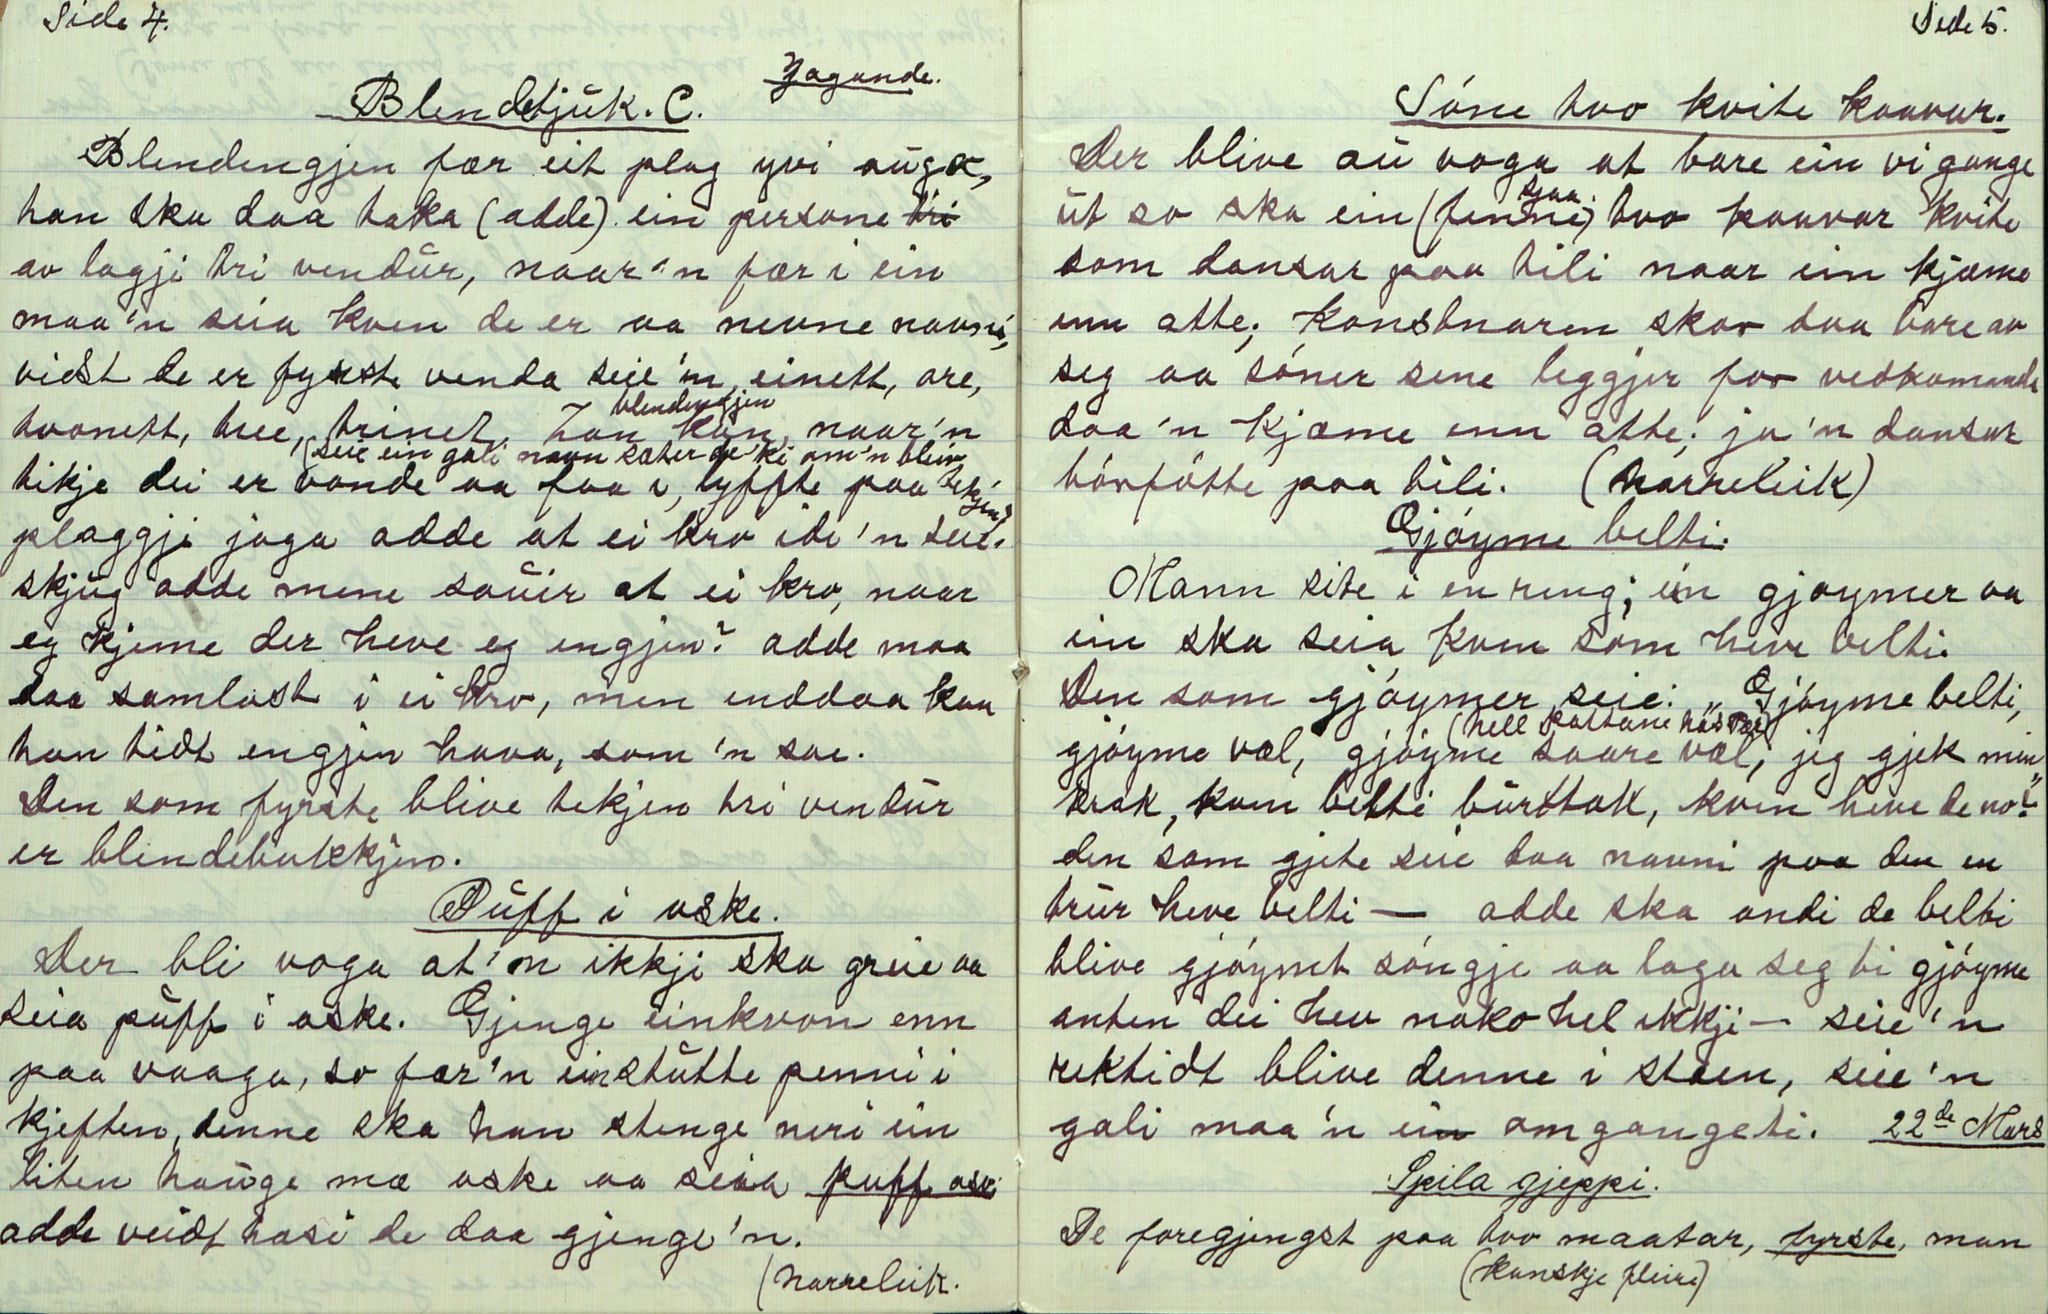 Side 4.
Jagande.
Blendetjuk. C.
Blendengjen fær eit plag yvi auga,
han ska daa taka (adde) ein persone tri
av lagji tri vendůr, naar'n fær i ein
maa'n seia kven de er aa nevne navni,
vidst de er fyrste venda seie'n, einett, are,
tvonett, tree, trinet. Han kan, naar'n
blendengjen
(seie ein gali navn sæter de'ki om'n bleiv
tekjen)
tikje dei er vonde aa faa i, lyffte paa
plaggji jaga adde at ei kro ide'n seie.
skjůg adde mene sauir at ei kro, naar
eg kjeme der heve eg engjen? adde maa
daa samlast i ei kro, men enddaa kan
han tidt engjen hava, som'n sae.
Den som fyrste blive tekjen tri vendůr
er blendebukkjen.
Půff i oske.
Der bli voga at'n ikkji ska greie aa
seia půff i oske. Gjenge einkvan enn
paa vaaga, so fær'n ein stůtte penni i
kjeften, denne ska han stenge neri ein
liten haůge mæ oske aa seia puff oske
adde veidt hosi de daa gjenge'n.
(narreleik.
Side 5.
Sóne tvo kvite kaavur.
Der blive aů voga at bare ein vi gange
ůt so ska ein (fenne) tvo kaavar kvite
sjaa
som dansar paa tili naar ein kjæme
enn atte; Konstnaren skor daa bare av
seg aa sóner sene leggjer for vedkomande
daa'n kjæme enn atte; ja'n dansar
bórfótte paa tili. (narreleik)
Gjóyme belti.
Mann site i en reng; ein gjoymer aa
ein ska seia kvem som heve belti.
Den som gjóymer seie: „Gjóyme belti,
(hell kattane hós Per)
gjóyme væl, gjóyme saare væl, jeg gjek min
krok, kom belti bůrttok, kven heve de no?"
den som gjete seie daa navni paa den en
trůr heve belti — adde ska andi de belti
blive gjóymt sóngje aa laga seg ti gjóyme
anten dei hev noko hel ikkji — seie'n
rektidt blive denne i staen, seie'n
gali maa'n ein omgangeti. 22de Mars
Spila gjeppi.
De foregjengst paa tvo maatar, fyrste, man
(kanskje fleire)